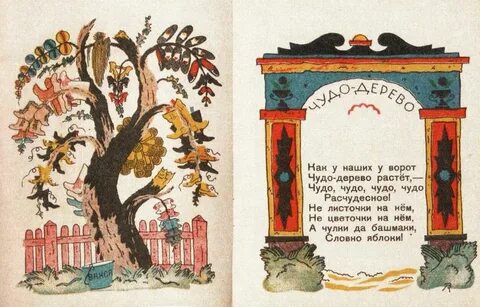 ВАКСА
ЧУДО-ДЕРЕВО
Как у наших у ворот
Чудо-дерево растёт,—
Чудо, чудо, чудо, чудо
Расчудесное!
Не листочки на нём,
Не цветочки на нём,
А чулки да башмаки,
Словно яблоки!